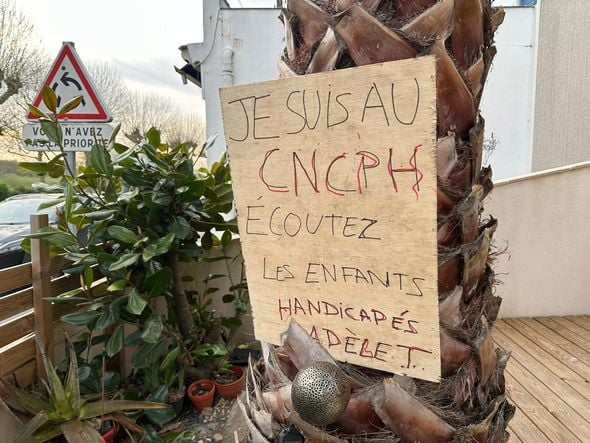 VOUS N'AVEZ
PAS LA PRIORITÉ
JE SUIS AU
CNCPH
ÉCOUTEZ
LES ENFANTS
HANDICAPÉS
ADÈLE T.